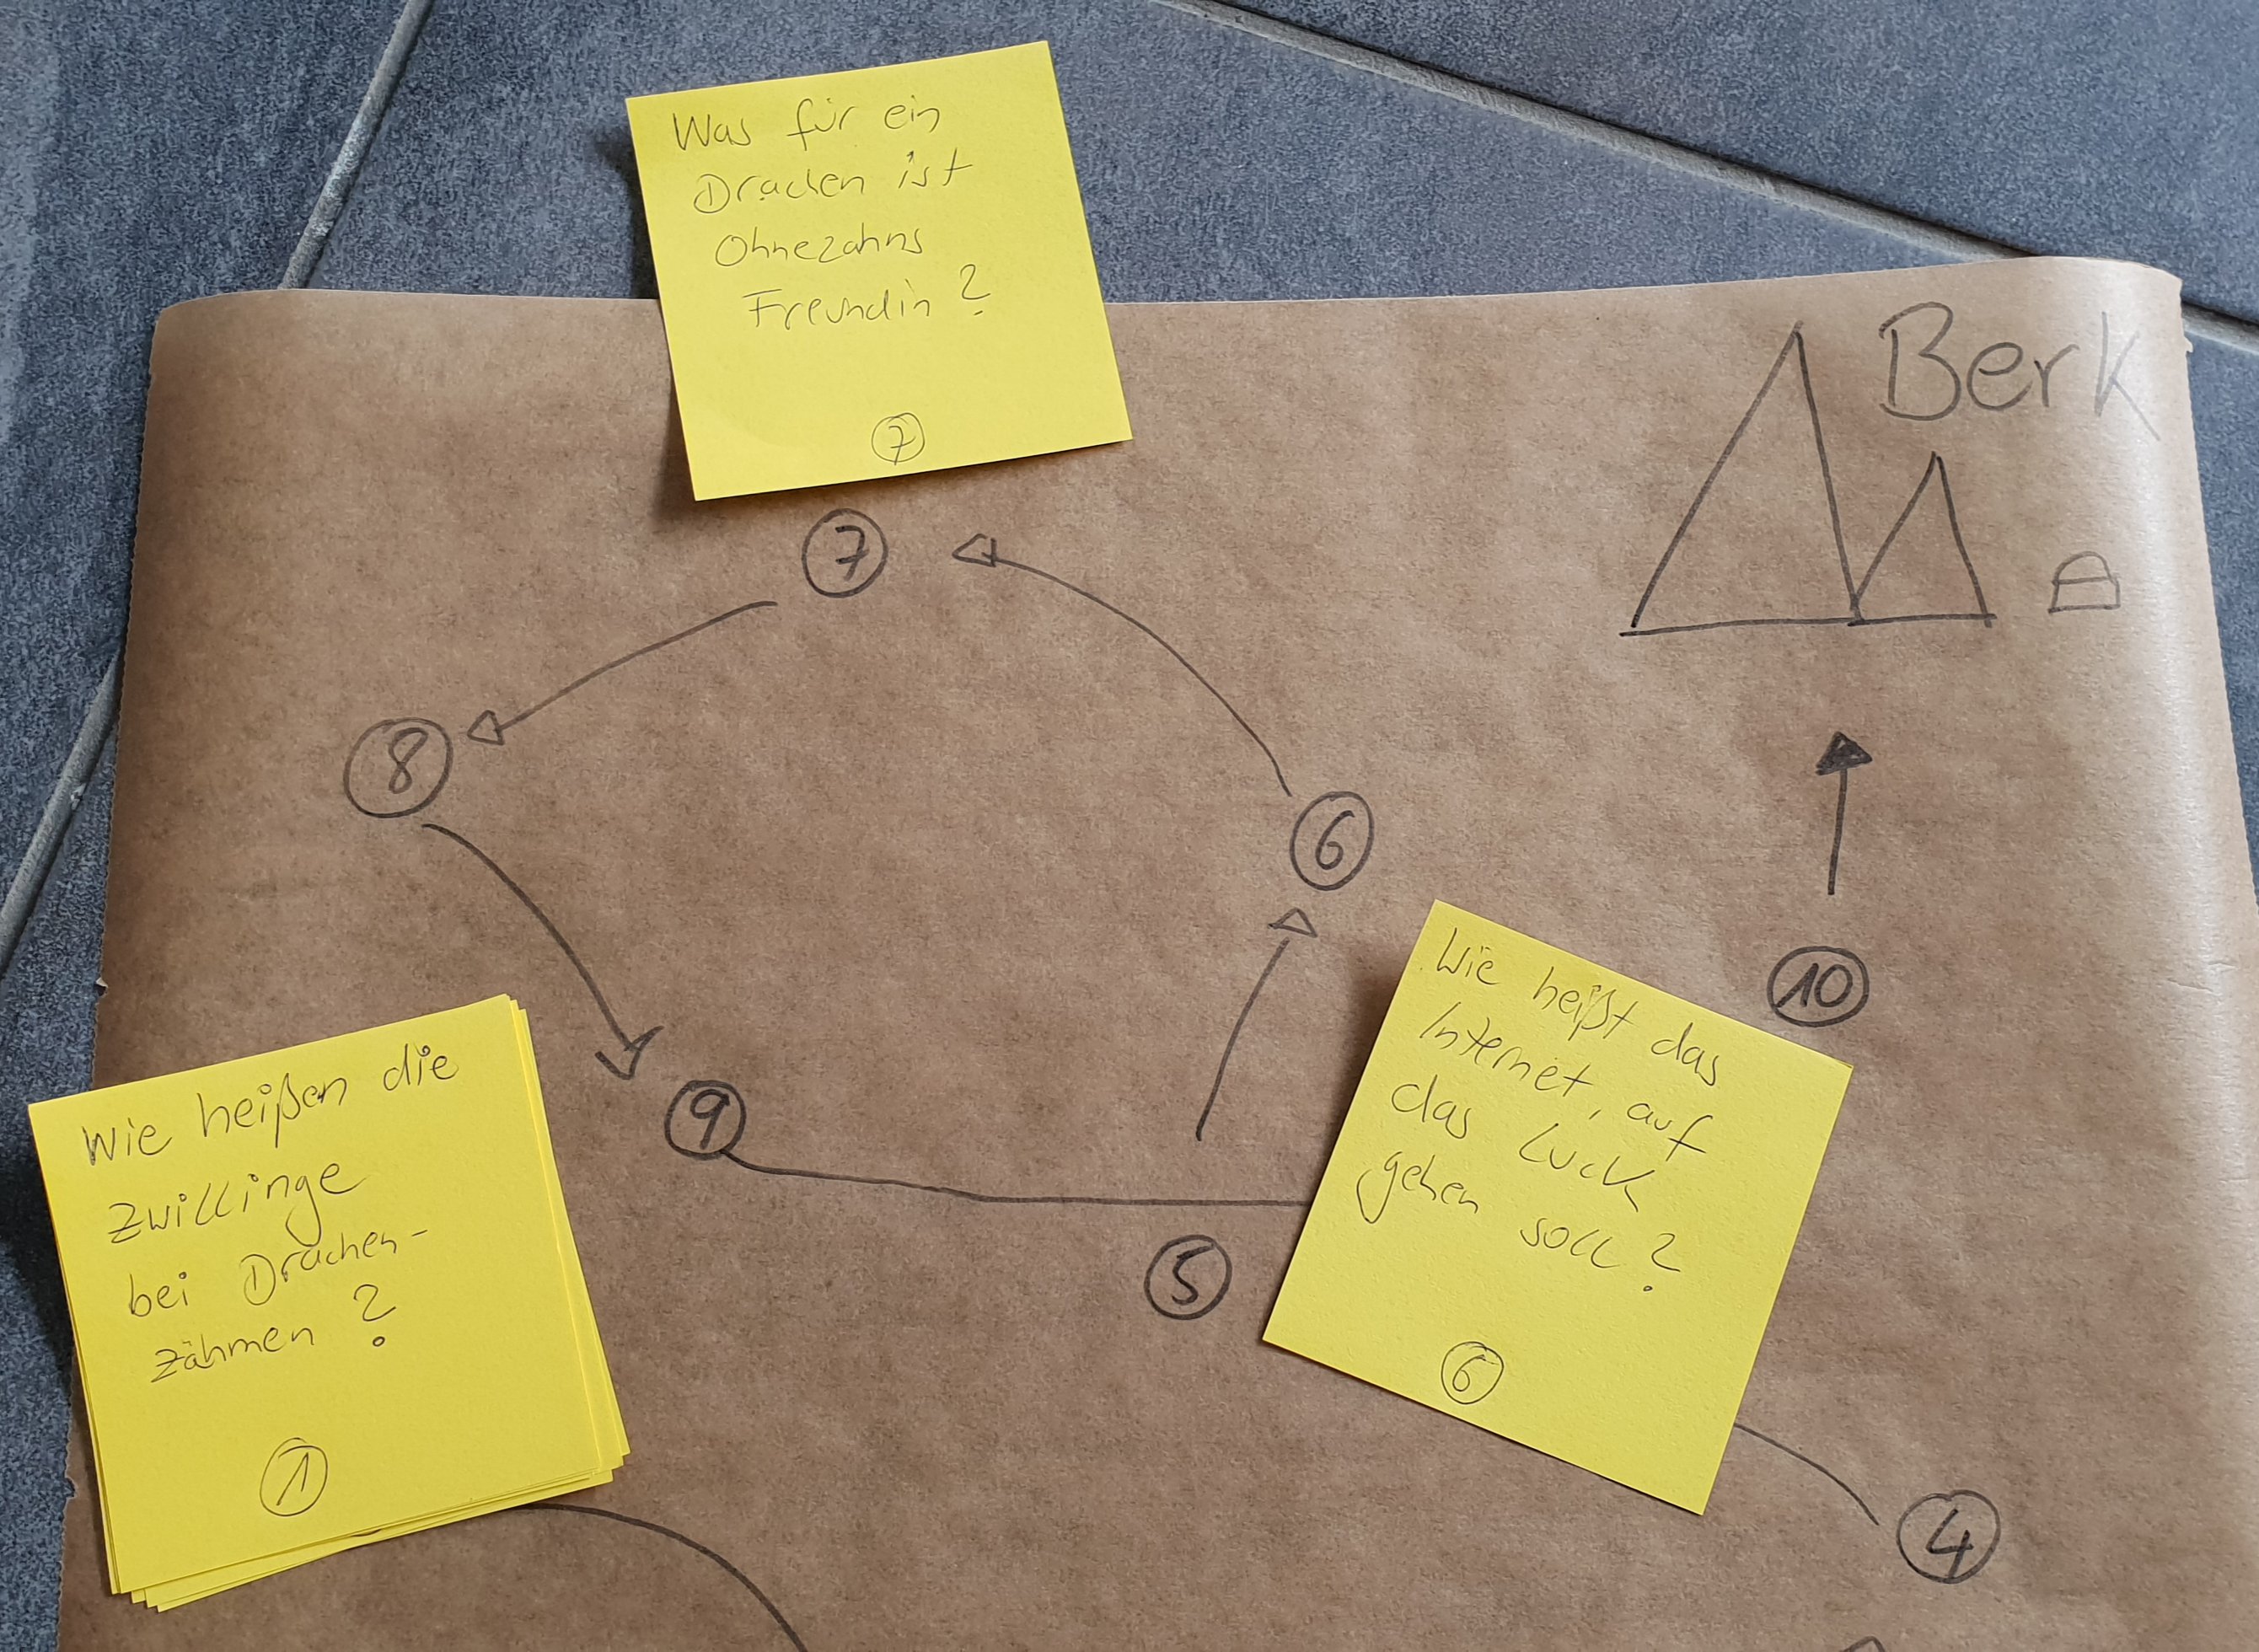 Was für ein
Drachen ist
Ohnezahns
Freundin?
7
Berk
7
8
6
10
Wie heißt das
Internet, auf
das Luck
gehen soll?
6
9
5
Wie heißen die
Zwillinge
bei Drachen-
zähmen?
1
4